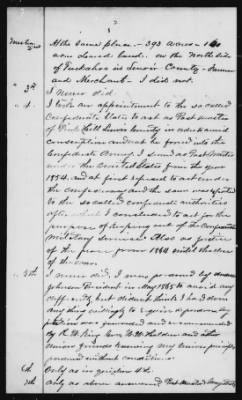 2
Question 2nd
At the same place. - 393 acres - 160
acres cleared land. on the North side
of Tuckahoe in Lenoir County - Farmer
and Merchant - I did not.
" 3rd
I never did
" 4.
I took an appointment to the so called
Confederate States to act as Post master
of Pink Hill Lenoir County in order to avoid
conscription and not be forced into the
Confederate Army. I served as Post Master
under the United States from the year
1854. and at first refused to act under
the confederacy and the same was reported
to the so called confederate authorities
after which I concluded to act for the
purpose of keeping out of the Confederate
military service. Also as justice
of the peace from 1864 until the close
of the war.
" 5th
I never did, I was pardoned by Andrew
Johnson President in May 1865 to avoid any
difficulty, but did not think I had done
any thing willingly to require a pardon, my
petition was forwarded and recommended
by R. W. King, Gov. W. W. Holden and other
Union friends knowing my union principles
pardoned without conditions.
6th
Only as in question 4th.
7th
only as above answered